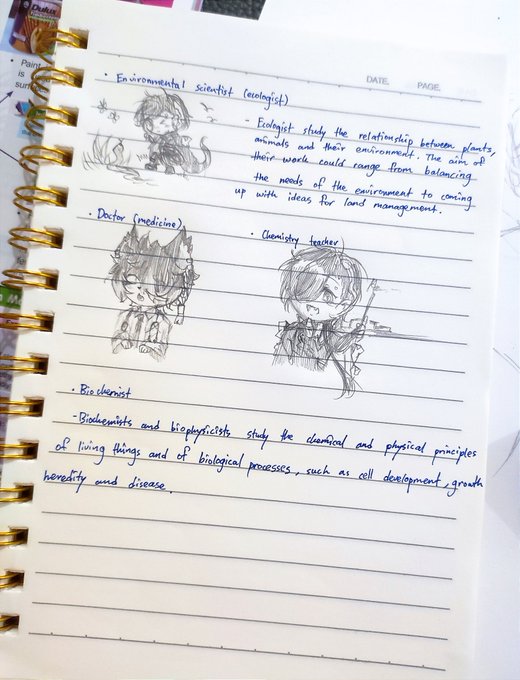 Dulux
• Paint
is
DATE.
PAGE.
• Environmental scientist (ecologist)
- Ecologist study the relationship between plants,
animals and their environment. The aim of
their work could range from balancing
the needs of the environment to coming
up with ideas for land management.
• Doctor (medicine)
• Chemistry teacher
• Biochemist
- Biochemists and biophysicists study the chemical and physical principles
of living things and of biological processes, such as cell development, growth
heredity and disease.